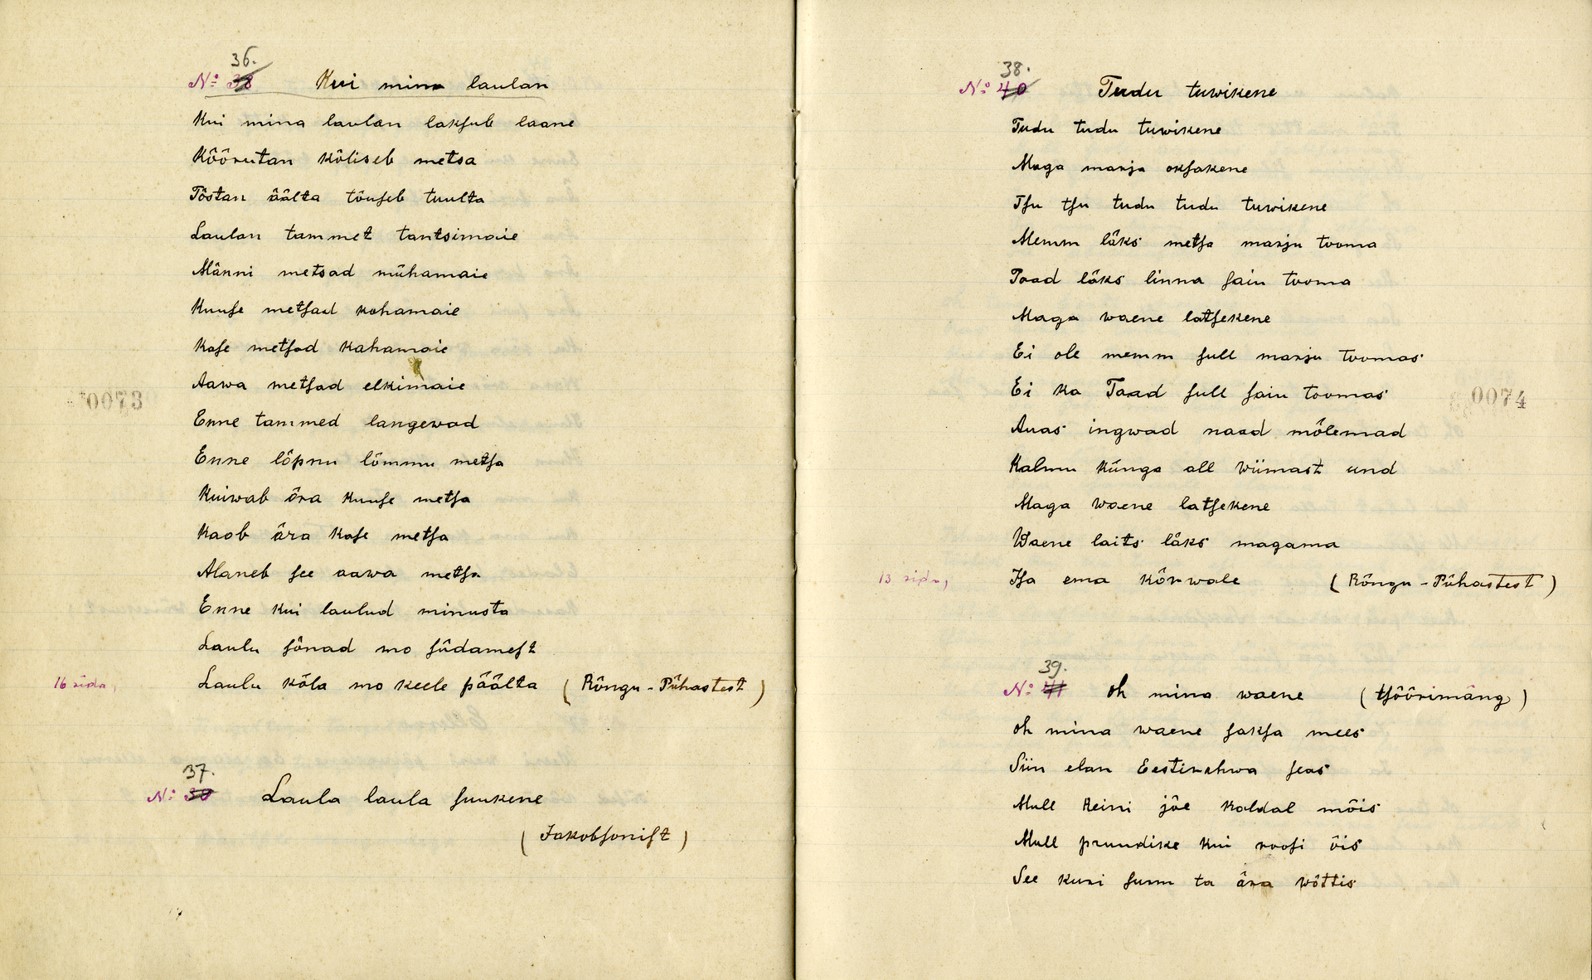 36.
No: 38 Kui mina laulan
Kui mina laulan lakſub laane
Köörutan kõliseb metsa
Tõstan äälta tõuſeb tuulta
Laulan tammet tantsimaie
Männi metsad mühamaie
Kuuſe metſad kohamaie
Kaſe metſad kahamaie
Aawa metſad elkimaie
Enne tammed langewad
Enne lõpnu lõmmu metſa
Kuiwab ära kuuſe metſa
Kaob ära kaſe metſa
Alaneb ſee aawa metſa
Enne kui laulud minusta
Laulu ſõnad mo ſüdameſt
16 rida, Laulu kõla mo keele päälta (Rõngu-Pühastest)
37.
No: 39 Laula laula ſuukene
(Jakobſoniſt)
0073
38.
No: 40 Tudu tuwikene
Tudu tudu tuwikene
Maga marja okſakene
Tſu tſu tudu tudu tuwikene
Memm läks metſa marju tooma
Taad läks linna ſaiu tooma
Maga waene latſekene
Ei ole memm ſull marju toomas
Ei ka Taad ſull ſaiu toomas
Auas ingwad naad mõlemad
Kalmu künga all wiimast und
Maga waene latſekene
Waene laits läks magama
13 rida, Iſa ema kõrwale (Rõngu-Pühastest)
39.
No: 41 Oh mina waene (Sõõrimäng)
Oh mina waene ſakſa mees
Siin elan Eestirahwa ſeas
Mull Reini jõe kaldal mõis
Mull pruudike kui rooſi õis
See kuri ſurm ta ära wõttis
0074